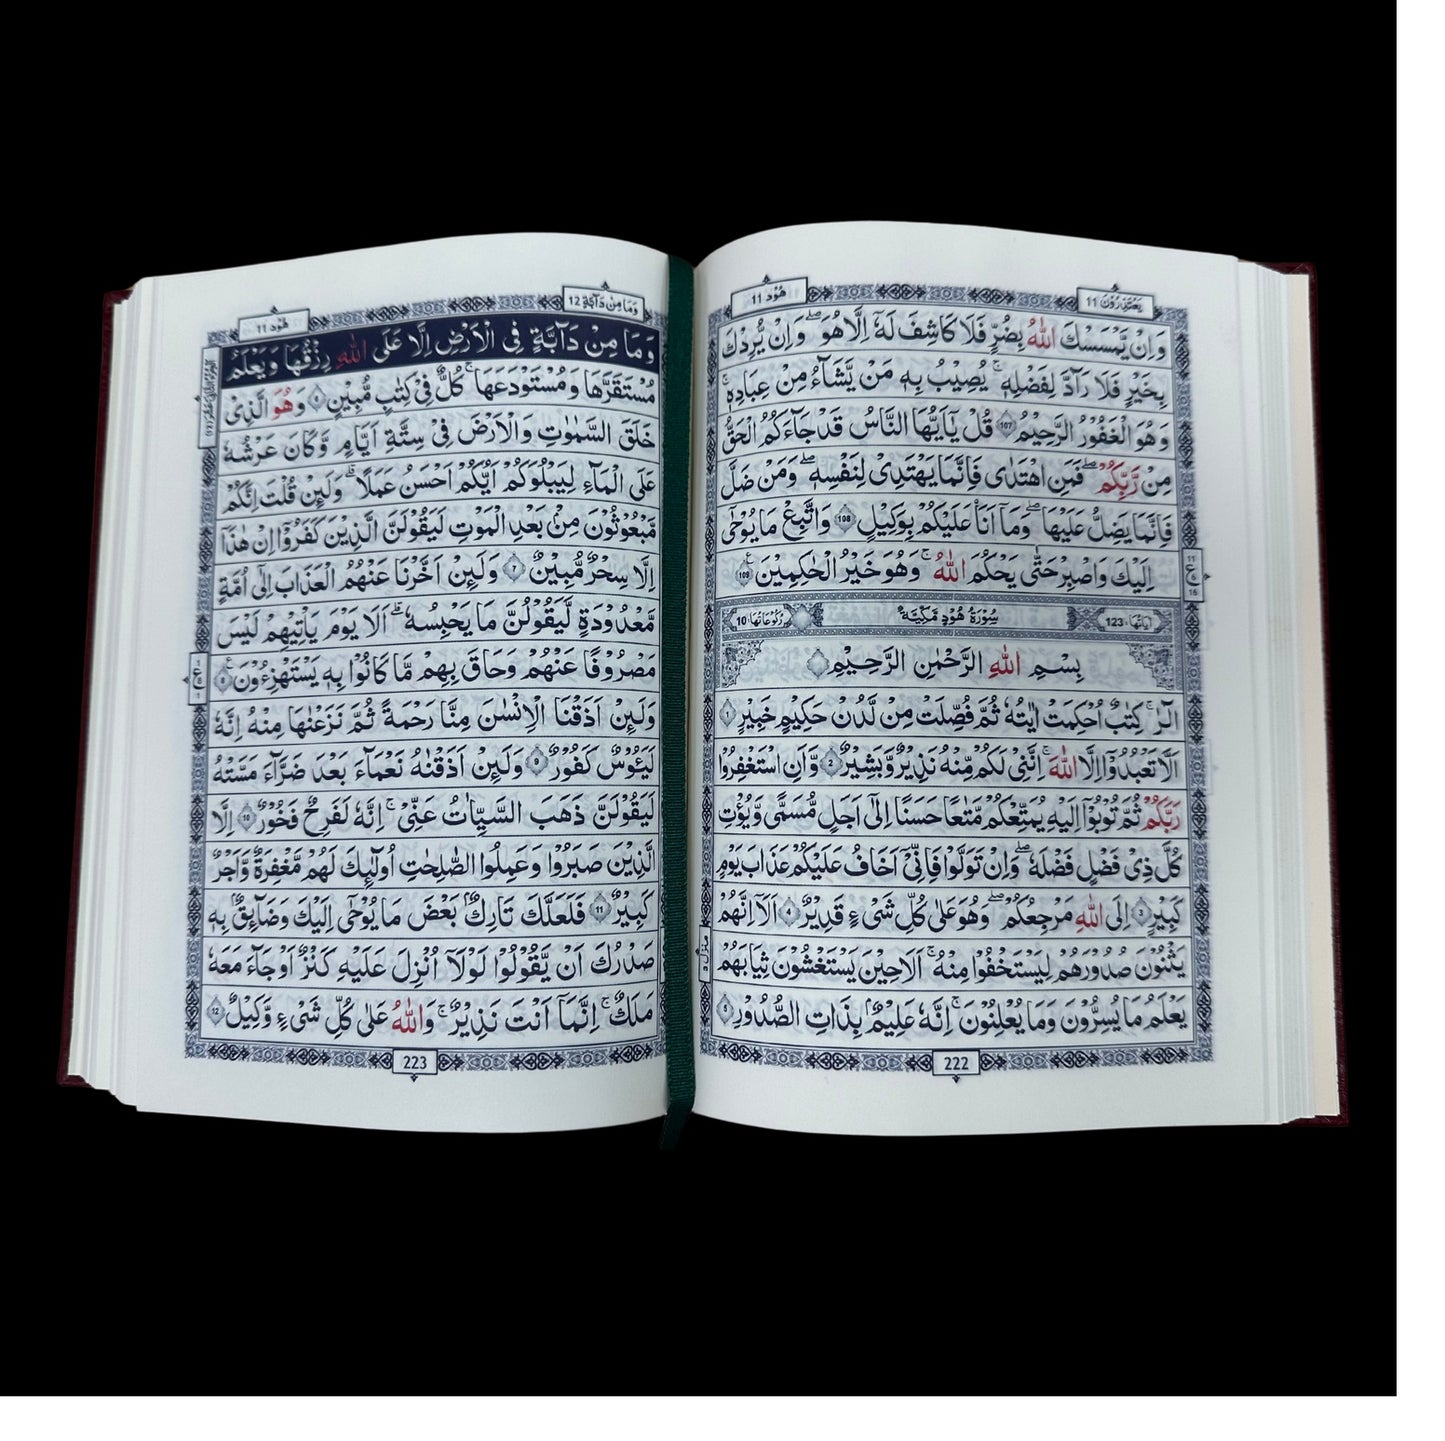 يَعْتَذِرُوْنَ 11
هُوْد 11
وَاِنْ يَّمْسَسْكَ اللّٰهُ بِضُرٍّ فَلَا كَاشِفَ لَهٗۤ اِلَّا هُوَ ۖ وَاِنْ يُّرِدْكَ
بِخَيْرٍ فَلَا رَآدَّ لِفَضْلِهٖ ؕ يُصِيْبُ بِهٖ مَنْ يَّشَآءُ مِنْ عِبَادِهٖ ؕ
وَهُوَ الْغَفُوْرُ الرَّحِيْمُ 107 قُلْ يٰۤاَيُّهَا النَّاسُ قَدْ جَآءَكُمُ الْحَقُّ
مِنْ رَّبِّكُمْ ۖ فَمَنِ اهْتَدٰى فَاِنَّمَا يَهْتَدِىْ لِنَفْسِهٖ ۖ وَمَنْ ضَلَّ
فَاِنَّمَا يَضِلُّ عَلَيْهَا ۖ وَمَاۤ اَنَا۠ عَلَيْكُمْ بِوَكِيْلٍ 108 وَاتَّبِعْ مَا يُوْحٰۤى
اِلَيْكَ وَاصْبِرْ حَتّٰى يَحْكُمَ اللّٰهُ ۚ وَهُوَ خَيْرُ الْحٰكِمِيْنَ 109
ع 11 16
اٰيَاتُهَا 123
سُوْرَةُ هُوْدٍ مَّكِّيَّةٌ
رُكُوْعَاتُهَا 10
بِسْمِ اللّٰهِ الرَّحْمٰنِ الرَّحِيْمِ
الٓرٰ ۚ كِتٰبٌ اُحْكِمَتْ اٰيٰتُهٗ ثُمَّ فُصِّلَتْ مِنْ لَّدُنْ حَكِيْمٍ خَبِيْرٍ 1
اَلَّا تَعْبُدُوْۤا اِلَّا اللّٰهَ ؕ اِنَّنِىْ لَكُمْ مِّنْهُ نَذِيْرٌ وَّبَشِيْرٌ 2 وَّاَنِ اسْتَغْفِرُوْا
رَبَّكُمْ ثُمَّ تُوْبُوْۤا اِلَيْهِ يُمَتِّعْكُمْ مَّتَاعًا حَسَنًا اِلٰۤى اَجَلٍ مُّسَمًّى وَّيُؤْتِ
كُلَّ ذِىْ فَضْلٍ فَضْلَهٗ ۖ وَاِنْ تَوَلَّوْا فَاِنِّىْۤ اَخَافُ عَلَيْكُمْ عَذَابَ يَوْمٍ
كَبِيْرٍ 3 اِلَى اللّٰهِ مَرْجِعُكُمْ ۖ وَهُوَ عَلٰى كُلِّ شَىْءٍ قَدِيْرٌ 4 اَلَاۤ اِنَّهُمْ
يَثْنُوْنَ صُدُوْرَهُمْ لِيَسْتَخْفُوْا مِنْهُ ؕ اَلَا حِيْنَ يَسْتَغْشُوْنَ ثِيَابَهُمْ
يَعْلَمُ مَا يُسِرُّوْنَ وَمَا يُعْلِنُوْنَ ۚ اِنَّهٗ عَلِيْمٌۢ بِذَاتِ الصُّدُوْرِ 5
منزل ٣
222
وَمَا مِنْ دَآبَّةٍ 12
هُوْد 11
وَمَا مِنْ دَآبَّةٍ فِى الْاَرْضِ اِلَّا عَلَى اللّٰهِ رِزْقُهَا وَيَعْلَمُ
مُسْتَقَرَّهَا وَمُسْتَوْدَعَهَا ؕ كُلٌّ فِىْ كِتٰبٍ مُّبِيْنٍ 6 وَهُوَ الَّذِىْ
خَلَقَ السَّمٰوٰتِ وَالْاَرْضَ فِىْ سِتَّةِ اَيَّامٍ وَّكَانَ عَرْشُهٗ
عَلَى الْمَآءِ لِيَبْلُوَكُمْ اَيُّكُمْ اَحْسَنُ عَمَلًا ؕ وَلَئِنْ قُلْتَ اِنَّكُمْ
مَّبْعُوْثُوْنَ مِنْۢ بَعْدِ الْمَوْتِ لَيَقُوْلَنَّ الَّذِيْنَ كَفَرُوْۤا اِنْ هٰذَاۤ
اِلَّا سِحْرٌ مُّبِيْنٌ 7 وَلَئِنْ اَخَّرْنَا عَنْهُمُ الْعَذَابَ اِلٰۤى اُمَّةٍ
مَّعْدُوْدَةٍ لَّيَقُوْلُنَّ مَا يَحْبِسُهٗ ؕ اَلَا يَوْمَ يَاْتِيْهِمْ لَيْسَ
مَصْرُوْفًا عَنْهُمْ وَحَاقَ بِهِمْ مَّا كَانُوْا بِهٖ يَسْتَهْزِءُوْنَ 8
ع 1 8 1
وَلَئِنْ اَذَقْنَا الْاِنْسَانَ مِنَّا رَحْمَةً ثُمَّ نَزَعْنٰهَا مِنْهُ اِنَّهٗ
لَيَئُوْسٌ كَفُوْرٌ 9 وَلَئِنْ اَذَقْنٰهُ نَعْمَآءَ بَعْدَ ضَرَّآءَ مَسَّتْهُ
لَيَقُوْلَنَّ ذَهَبَ السَّيِّاٰتُ عَنِّىْ ؕ اِنَّهٗ لَفَرِحٌ فَخُوْرٌ 10 اِلَّا
الَّذِيْنَ صَبَرُوْا وَعَمِلُوا الصّٰلِحٰتِ اُولٰٓئِكَ لَهُمْ مَّغْفِرَةٌ وَّاَجْرٌ
كَبِيْرٌ 11 فَلَعَلَّكَ تَارِكٌۢ بَعْضَ مَا يُوْحٰۤى اِلَيْكَ وَضَآئِقٌۢ بِهٖ
صَدْرُكَ اَنْ يَّقُوْلُوْا لَوْلَاۤ اُنْزِلَ عَلَيْهِ كَنْزٌ اَوْ جَآءَ مَعَهٗ
مَلَكٌ ؕ اِنَّمَاۤ اَنْتَ نَذِيْرٌ ؕ وَاللّٰهُ عَلٰى كُلِّ شَىْءٍ وَّكِيْلٌ 12
223